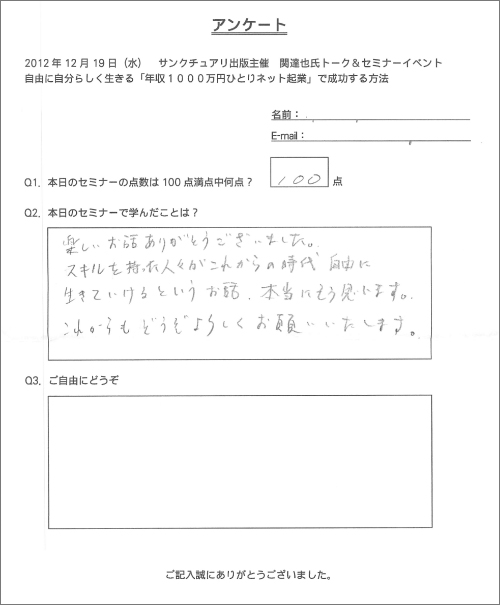 アンケート
2012年12月19日（水）　サンクチュアリ出版主催　関達也氏トーク＆セミナーイベント
自由に自分らしく生きる「年収１０００万円ひとりネット起業」で成功する方法
名前：
E-mail：
Q1．本日のセミナーの点数は100点満点中何点？ 100 点
Q2．本日のセミナーで学んだことは？
楽しいお話ありがとうございました。
スキルを持った人々がこれからの時代 自由に
生きていけるというお話、本当にそう思います。
これからもどうぞよろしくお願いいたします。
Q3．ご自由にどうぞ
ご記入誠にありがとうございました。